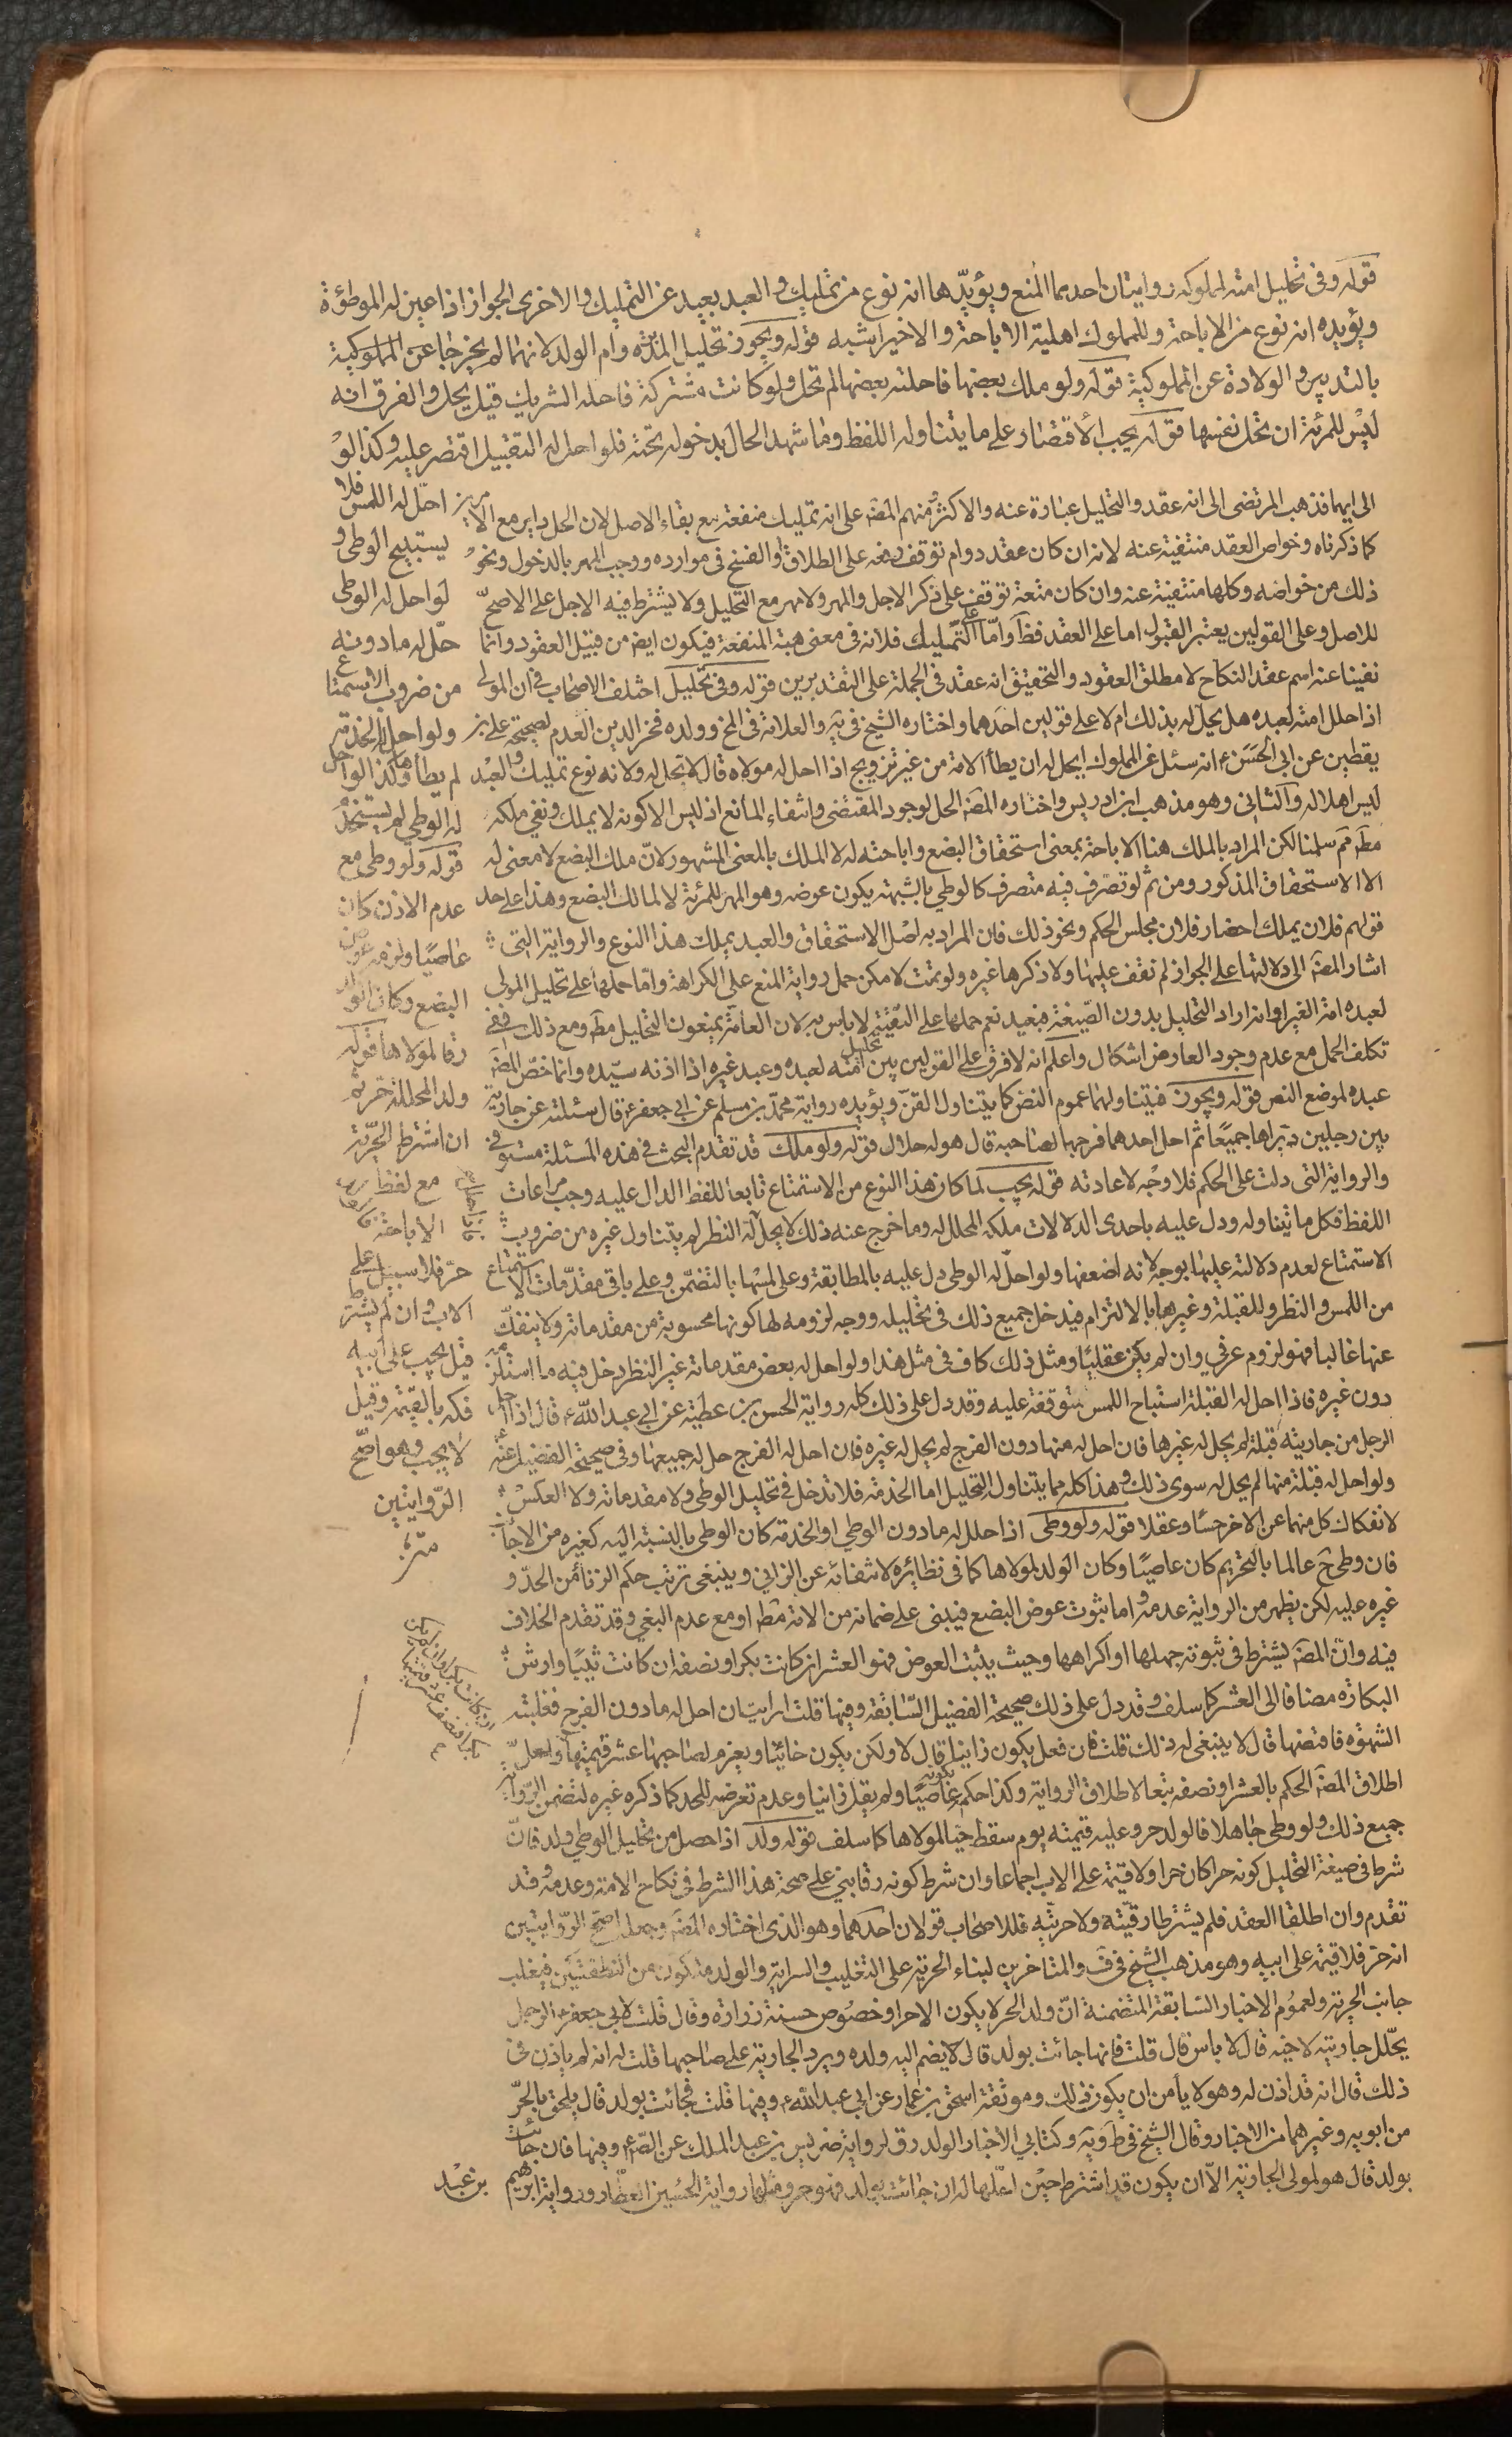 قوله وفى تحليل امته لمملوكه روايتان احديهما المنع ويؤيدها انه نوع من تمليك والعبد بعيد عن التمليك والاخرى الجواز اذا عين له الموطؤة
ويؤيده انه نوع من الاباحة وللمملوك اهلية الاباحة والاخير اشبه قوله ويجوز تحليل المدبرة وام الولد لانهما لم يخرجا عن المملوكية
بالتدبير والولادة عن المملوكية قوله ولو ملك بعضها فاحلته بعضها لم تحل ولو كانت مشتركة فاحله الشريك قيل يحل والفرق انه
ليس للمرئة ان تحل نفسها قوله يجب الاقتصار على ما يتناوله اللفظ وما شهد الحال بدخوله تحته فلو احل له التقبيل اقتصر عليه وكذا لو
احل له اللمس فلا
يستبيح الوطى و
لو احل له الوطى
حل له ما دونه
من ضروب الاستمتاع
ولو احل له الخدمة
لم يطأ وكذا لو احل
له الوطى لم يستخدم
قوله ولو وطى مع
عدم الاذن كان
عاصيا ولزمه عوض
البضع وكان الولد
رقا لمولاها قوله
ولد المحللة حر ثم
ان اشترط الحرية
مع لفظ
الاباحة
حر فلا سبيل على
الاب وان لم يشترط
قيل يجب على ابيه
فكه بالقيمة وقيل
لا يجب وهو اصح
الروايتين
الى ايهما فذهب المرتضى الى انه عقد والتحليل عبارة عنه والاكثر ومنهم المصة على انه تمليك منفعة مع بقاء الاصل لان الحل داير مع الامرين
كما ذكرناه وخواص العقد منتفية عنه لانه ان كان عقد دوام توقف رفعه على الطلاق او الفسخ فى موارده ووجب المهر بالدخول ونحو
ذلك من خواصه وكلها منتفية عنه وان كان متعة توقف على ذكر الاجل والمهر ولا مهر مع التحليل ولا يشترط فيه الاجل على الاصح
للاصل وعلى القولين يعتبر القبول اما على العقد فظ واما على التمليك فلانه فى معنى هبة المنفعة فيكون ايض من قبيل العقود وانما
نفينا عنه اسم عقد النكاح لا مطلق العقود والتحقيق انه عقد فى الجملة على التقديرين قوله وفى تحليل اختلف الاصحاب فى ان المولى
اذا حلل امته لعبده هل يحل له بذلك ام لا على قولين احدهما واختاره الشيخ فى ية والعلامة فى المخ وولده فخر الدين العدم لصحيحة على بن
يقطين عن ابى الحسن ع انه سئل عن المملوك ايحل له ان يطأ الامة من غير تزويج اذا احل له مولاه قال لا يحل له ولانه نوع تمليك والعبد
ليس اهلا له والثانى وهو مذهب ابن ادريس واختاره المصة الحل لوجود المقتضى وانتفاء المانع اذ ليس الا كونه لا يملك ونفى ملكه
مطة مم سلمنا لكن المراد بالملك هنا الاباحة بمعنى استحقاق البضع واباحته له لا الملك بالمعنى المشهور لان ملك البضع لا معنى له
الا الاستحقاق المذكور ومن ثم لو تصرف فيه متصرف كالوطى بالشبهة يكون عوضه وهو المهر للمرئة لا لمالك البضع وهذا على حد
قولهم فلان يملك احضار فلان مجلس الحكم ونحو ذلك فان المراد به اصل الاستحقاق والعبد يملك هذا النوع والرواية التى
اشار المصة الى دلالتها على الجواز لم نقف عليها ولا ذكرها غيره ولو تمت لامكن حمل رواية المنع على الكراهة واما حملها على تحليل المولى
لعبده امة الغير او انه اراد التحليل بدون الصيغة فبعيد نعم حملها على التقية لا باس به لان العامة يمنعون التحليل مطة ومع ذلك ففى
تكلف الحمل مع عدم وجود المعارض اشكال واعلم انه لا فرق على القولين بين تحليل امته لعبده وعبد غيره اذا اذنه سيده وانما خص المصة
عبده لموضع النص قوله ويجوز فيتناولهما عموم النص كما يتناول القن ويؤيده رواية محمد بن مسلم عن ابى جعفر ع قال سئلته عن جارية
بين رجلين دبراها جميعا ثم احل احدهما فرجها لصاحبه قال هو له حلال قوله ولو ملك قد تقدم البحث فى هذه المسئلة مستوفى
والرواية التى دلت على الحكم فلا وجه لاعادته قوله يجب لما كان هذا النوع من الاستمتاع تابعا للفظ الدال عليه وجب مراعات
اللفظ فكل ما تناوله ودل عليه باحدى الدلالات ملكه المحلل له وما خرج عنه ذلك لا يحل له النظر لم يتناول غيره من ضروب
الاستمتاع لعدم دلالته عليها بوجه لانه اضعفها ولو احل له الوطى دل عليه بالمطابقة وعلى لمسها بالتضمن وعلى باقى مقدمات الاستمتاع
من اللمس والنظر والقبلة وغيرها بالالتزام فيدخل جميع ذلك فى تحليله ووجه لزومه لها كونها محسوبة من مقدماته ولا ينفك
عنها غالبا فهو لزوم عرفى وان لم يكن عقليا ومثل ذلك كاف فى مثل هذا ولو احل له بعض مقدماته غير النظر دخل فيه ما استلزمه
دون غيره فاذا احل له القبلة استباح اللمس المتوقفة عليه وقد دل على ذلك كله رواية الحسن بن عطية عن ابى عبد الله ع قال اذا احل
الرجل من جاريته قبلة لم يحل له غيرها فان احل له منها دون الفرج لم يحل له غيره فان احل له الفرج حل له جميعها وفى صحيحة الفضيل عنه
ولو احل له قبلة منها لم يحل له سوى ذلك وهذا كله مما يتناول التحليل اما الخدمة فلا تدخل فى تحليل الوطى ولا مقدماته ولا العكس
لانفكاك كل منهما عن الاخر حسا وعقلا قوله ولو وطى اذا حلل له ما دون الوطى او الخدمة كان الوطى بالنسبة اليه كغيره من الاجانب
فان وطى ح عالما بالتحريم كان عاصيا وكان الولد لمولاها كما فى نظائره لانتفائه عن الزانى وينبغى ترتب حكم الزنا من الحد و
غيره عليه لكن يظهر من الرواية عدمه واما ثبوت عوض البضع فيبنى على ضمانه من الامة مطة او مع عدم البغى وقد تقدم الخلاف
فيه وان المصة يشترط فى ثبوته جهلها او اكراهها وحيث يثبت العوض فهو العشر ان كانت بكرا ونصفه ان كانت ثيبا وارش
البكارة مضافا الى العشر كما سلف وقد دل على ذلك صحيحة الفضيل السابقة وفيها قلت ارايت ان احل له ما دون الفرج فغلبته
الشهوة فافتضها قال لا ينبغى له ذلك قلت فان فعل يكون زانيا قال لا ولكن يكون خائنا ويغرم لصاحبها عشر قيمتها ولعل
اطلاق المصة الحكم بالعشر او نصفه تبعا لاطلاق الرواية وكذا حكم بكونه عاصيا ولم يقل زانيا وعدم تعرضه للحد كما ذكره غيره لتضمن الرواية
جميع ذلك ولو وطى جاهلا فالولد حر وعليه قيمته يوم سقط حيا لمولاها كما سلف قوله ولد اذا حصل من تحليل الوطى ولد فان
شرط فى صيغة التحليل كونه حرا كان حرا ولا قيمة على الاب اجماعا وان شرط كونه رقا بنى على صحة هذا الشرط فى نكاح الامة وعدمه وقد
تقدم وان اطلقا العقد فلم يشترطا رقيته ولا حريته فللاصحاب قولان احدهما وهو الذى اختاره المصة وجعله اصح الروايتين
انه حر فلا قيمة على ابيه وهو مذهب الشيخ فى ف والمتاخرين لبناء الحرية على التغليب والسراية والولد متكون من النطفتين فيغلب
جانب الحرية ولعموم الاخبار السابقة المتضمنة ان ولد الحر لا يكون الا حرا وخصوص حسنة زرارة وقال قلت لابى جعفر ع الرجل
يحلل جاريته لاخيه قال لا باس قال قلت فانها جائت بولد قال لا يضم اليه ولده ويرد الجارية على صاحبها قلت له انه لم ياذن فى
ذلك قال انه قد اذن له وهو لا يامن ان يكون ذلك وموثقة اسحق بن عمار عن ابى عبد الله ع وفيها قلت فجائت بولد قال يلحق بالحر
من ابويه وغيرهما من الاخبار وقال الشيخ فى ط وية وكتابى الاخبار الولد رق لرواية ضريس بن عبد الملك عن الص ع وفيها فان جائت
بولد قال هو لمولى الجارية الا ان يكون قد اشترط حين احلها له ان جائت بولد فهو حر ومثلها رواية الحسين العطار ورواية ابراهيم
بن عبد